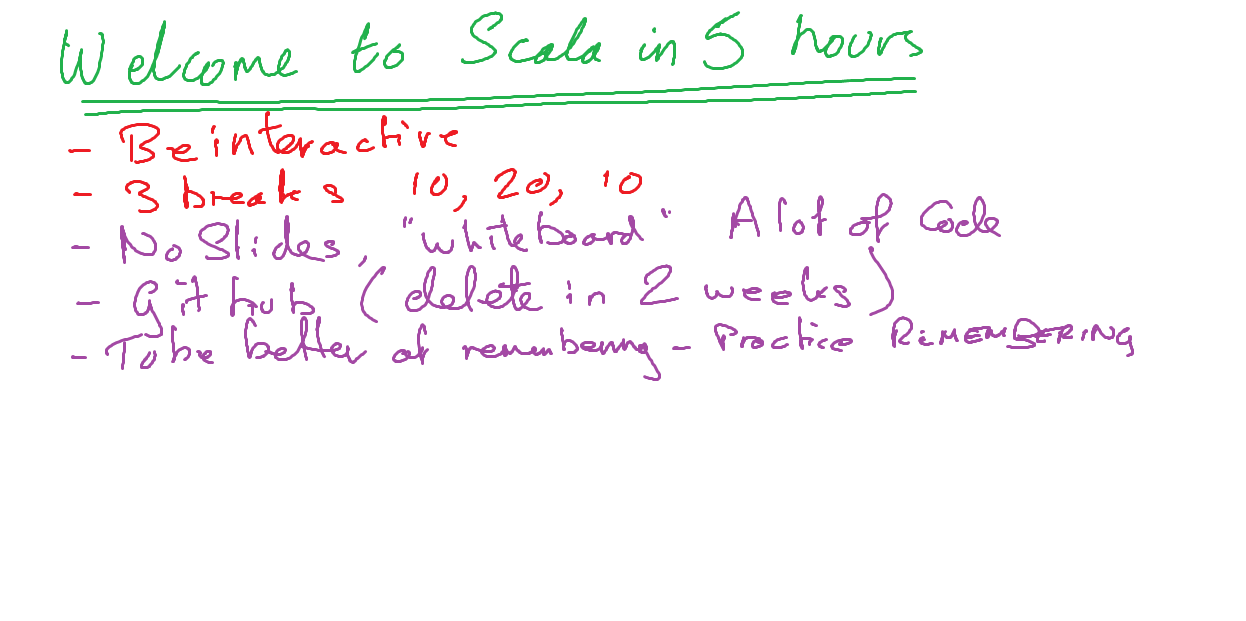 Welcome to Scala in 5 hours
- Be interactive
- 3 breaks 10, 20, 10
- No Slides, "whiteboard" A lot of Code
- Git hub (delete in 2 weeks)
- To be better at remembering - Practice REMEMBERING